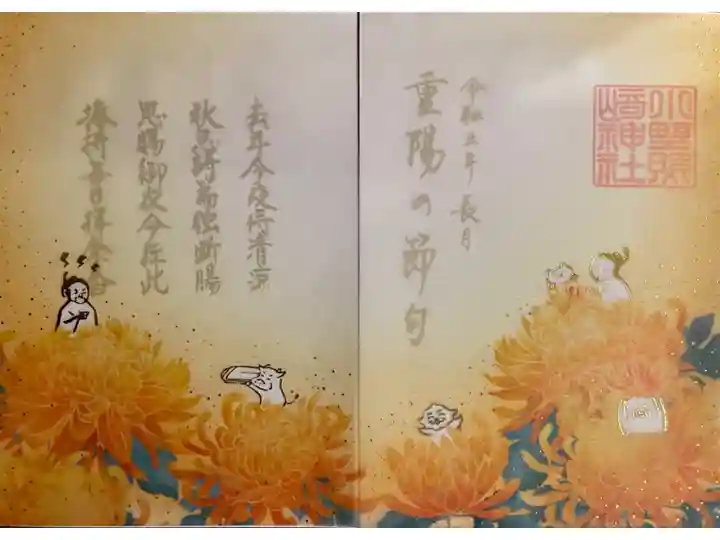 小野照
﨑神社
令和五年 長月
重陽の節句
去年今夜侍清涼
秋思詩篇独断腸
恩賜御衣今在此
捧持毎日拝余香